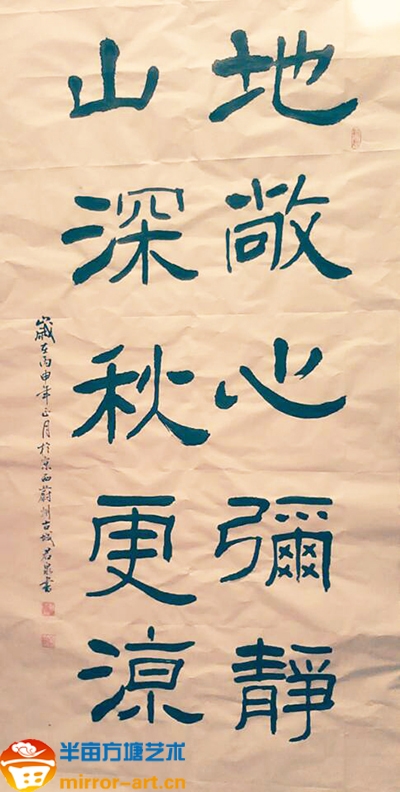 地敞心彌靜
山深秋更涼
歲在丙申年正月於京西蔚州古城若泉書
半亩方塘艺术
mirror-art.cn